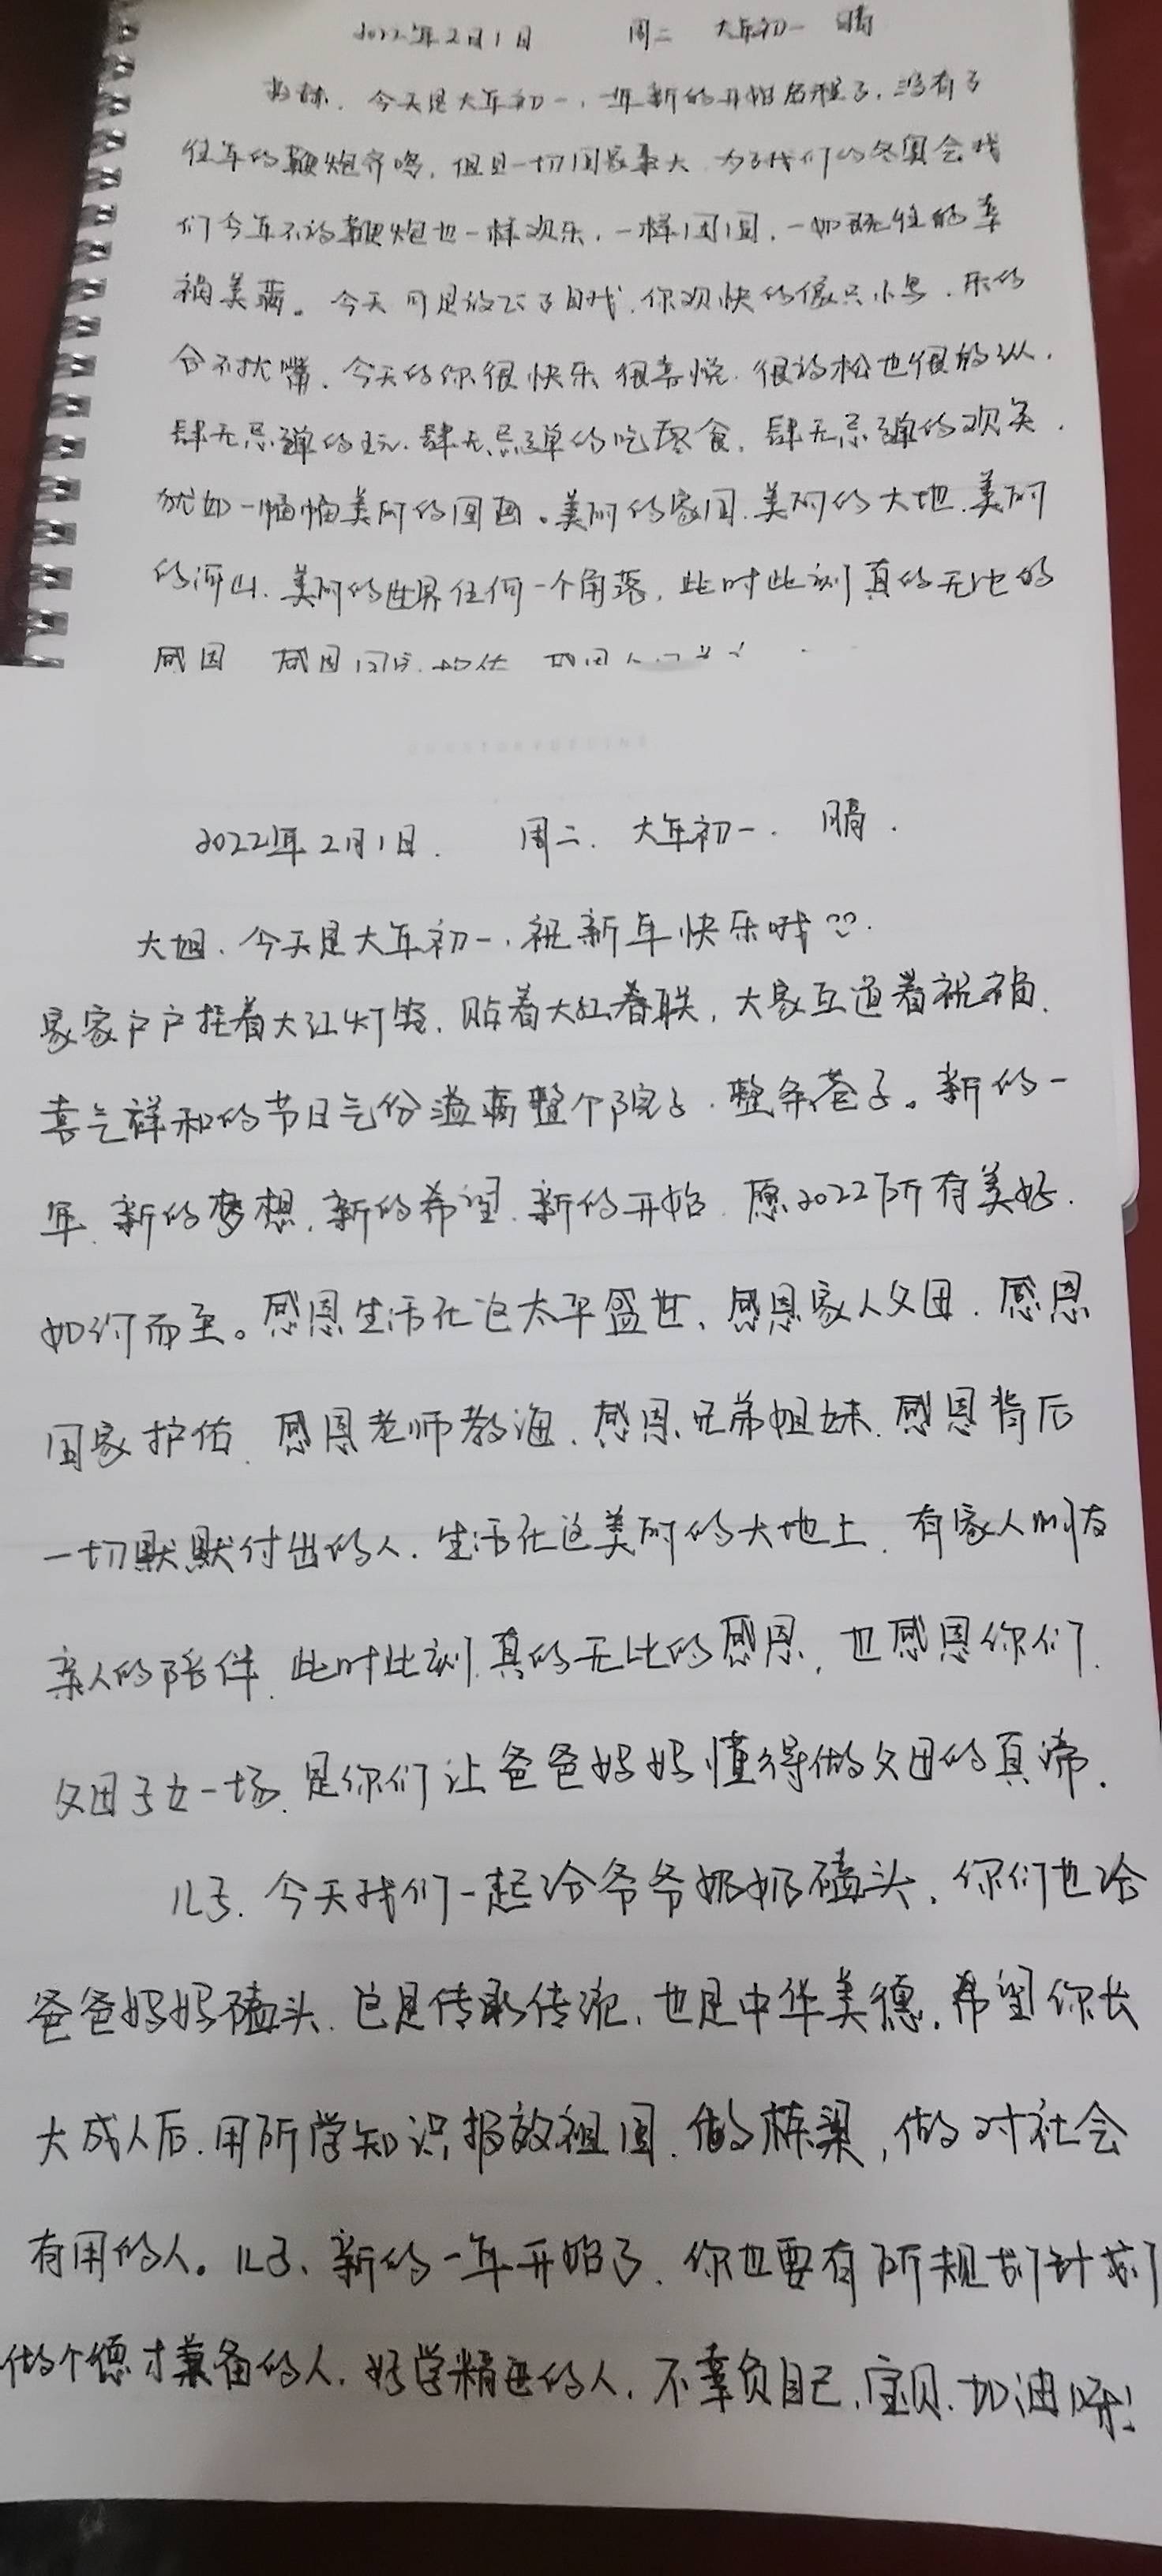 2022年2月1日 周二 大年初一 晴
今天是大年初一,一年新的开始启程了,没有了
往年的鞭炮齐鸣,但是一切国家最大,为了我们的冬奥会我
们今年不放鞭炮也一样欢乐,一样团圆,一如既往的幸
福美满。今天可是放飞了自我,你欢快的像只小鸟,乐的
合不拢嘴,今天的你很快乐,很喜悦,很放松也很放纵,
肆无忌弹的玩,肆无忌弹的吃零食,肆无忌弹的欢笑,
犹如一幅幅美丽的图画。美丽的家园,美丽的大地,美丽
的河山,美丽的世界任何一个角落,此时此刻真的无比的
感恩 感恩
2022年2月1日. 周二. 大年初一. 晴.
大姐,今天是大年初一,祝新年快乐哦
家家户户挂着大红灯笼,贴着大红春联,大家互道着祝福,
喜气祥和的节日气份溢满整个院子,整条巷子。新的一
年,新的梦想,新的希望,新的开始,愿2022所有美好,
如约而至。感恩生活在这太平盛世,感恩家人父母,感恩
国家护佑,感恩老师教海,感恩兄弟姐妹,感恩背后
一切默默付出的人,生活在这美丽的大地上,有家人朋友
亲人的陪伴,此时此刻,真的无比的感恩,也感恩你们,
父母子女一场,是你们让爸爸妈妈懂得做父母的真谛.
儿子,今天我们一起给爷爷奶奶磕头,你们也给
爸爸妈妈磕头,这是传承传统,也是中华美德,希望你长
大成人后,用所学知识报效祖国,做栋梁,做对社会
有用的人。儿子,新的一年开始了,你也要有所规划计划
做个德才兼备的人,好学精进的人,不辜负自己,宝贝,加油呀!